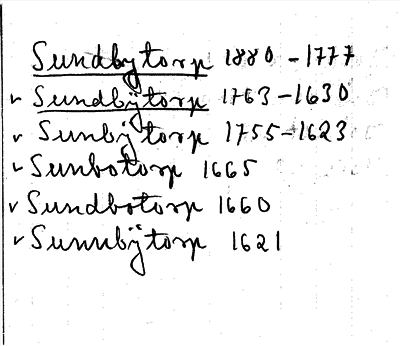 Sundbytorp 1880 - 1777
v Sundbÿtorp 1763 - 1630
v Sunbÿtorp 1755 - 1623
v Sunbotorp 1665
v Sundbotorp 1660
v Sunnbÿtorp 1621